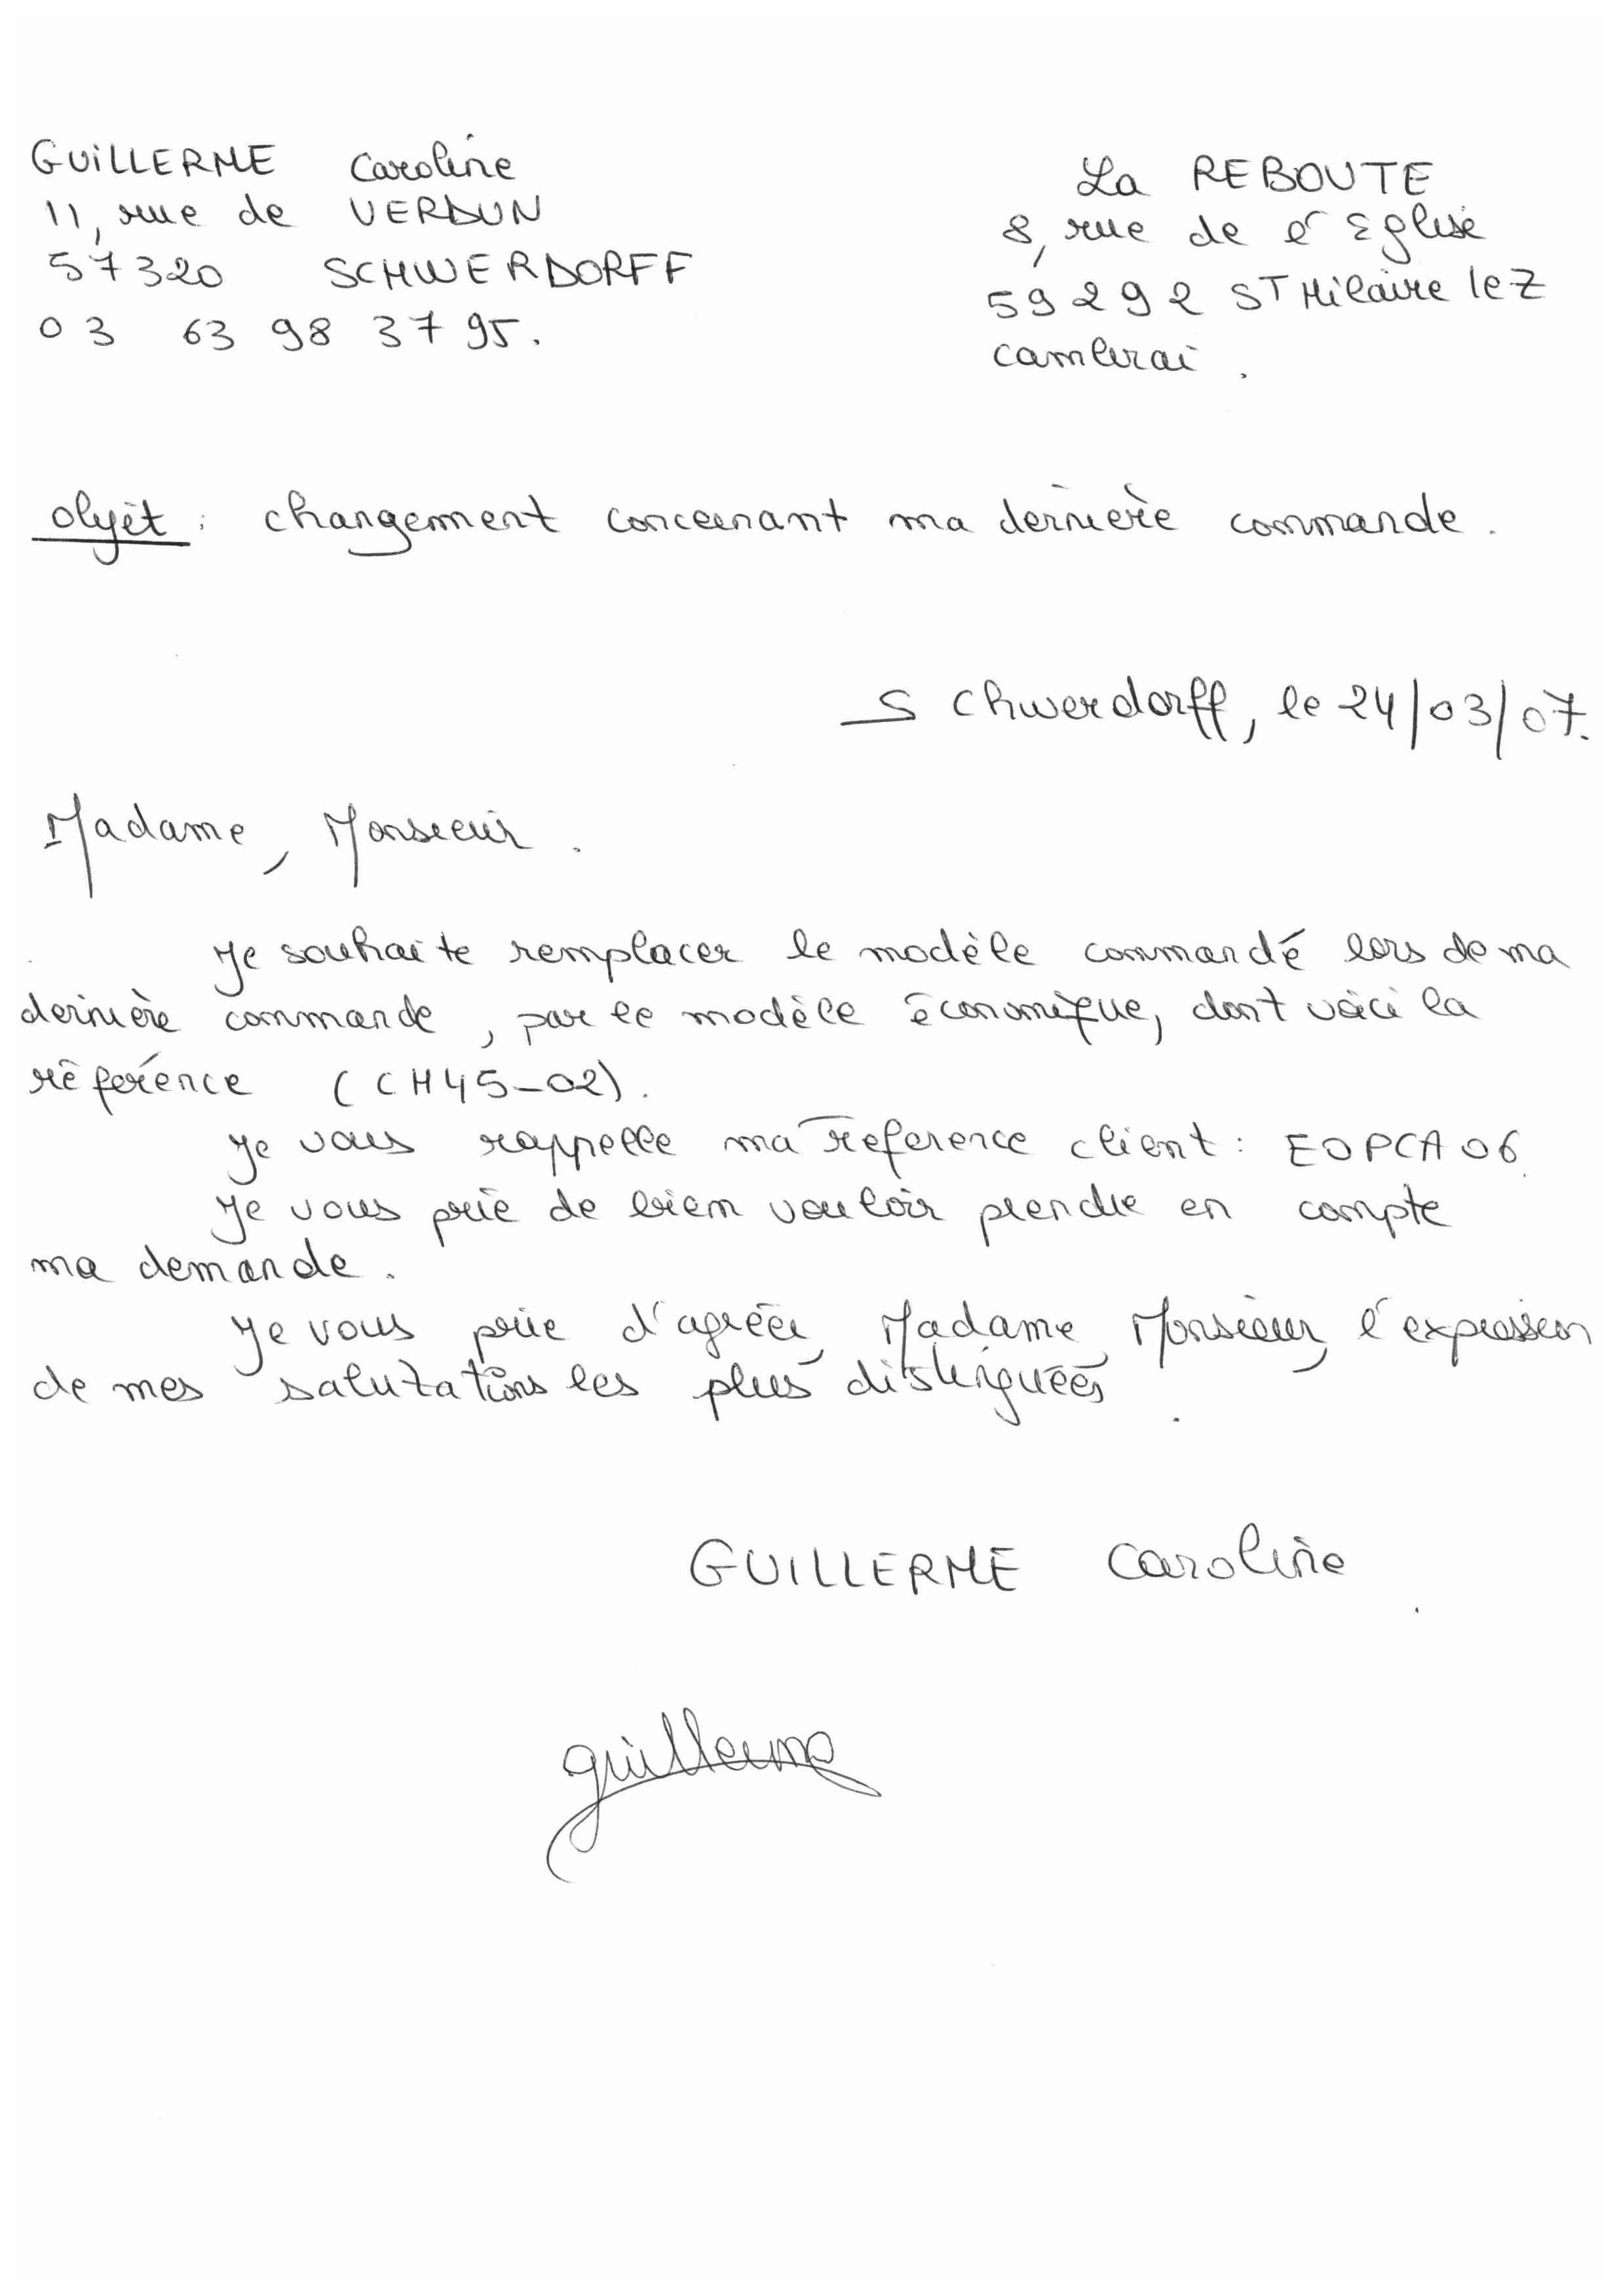 GUILLERME Caroline
11, rue de VERDUN
57320 SCHWERDORFF
03 63 98 37 95.
La REBOUTE
8, rue de l'Eglise
59292 ST Hilaire lez
cambrai.
objet : changement concernant ma dernière commande.
Schwerdorff, le 24/03/07.
Madame, Monsieur.
Je souhaite remplacer le modèle commandé lors de ma
dernière commande, par le modèle économique, dont voici la
référence (CH45-02).
Je vous rappelle ma reference client : EOPCA06.
Je vous prie de bien vouloir prendre en compte
ma demande.
Je vous prie d'agréer, Madame Monsieur, l'expression
de mes salutations les plus distinguées.
GUILLERME Caroline.
guillerme